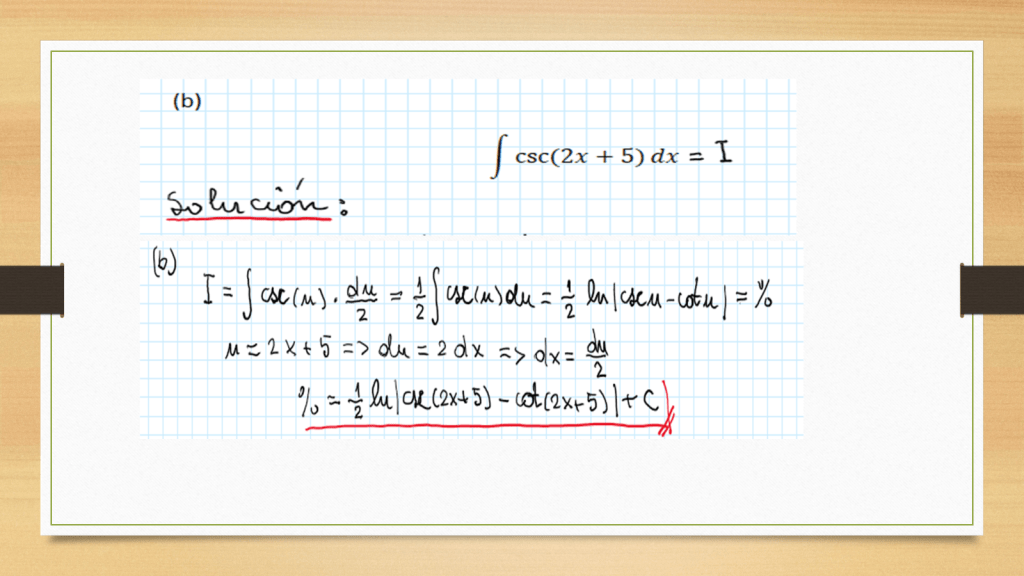 (b)
∫ csc(2x + 5) dx = I
Solución:
(b)
I = ∫ csc(u) · du/2 = 1/2 ∫ csc(u) du = 1/2 ln|csc u - cot u| = %
u = 2x + 5 => du = 2 dx => dx = du/2
% = 1/2 ln|csc(2x+5) - cot(2x+5)| + C